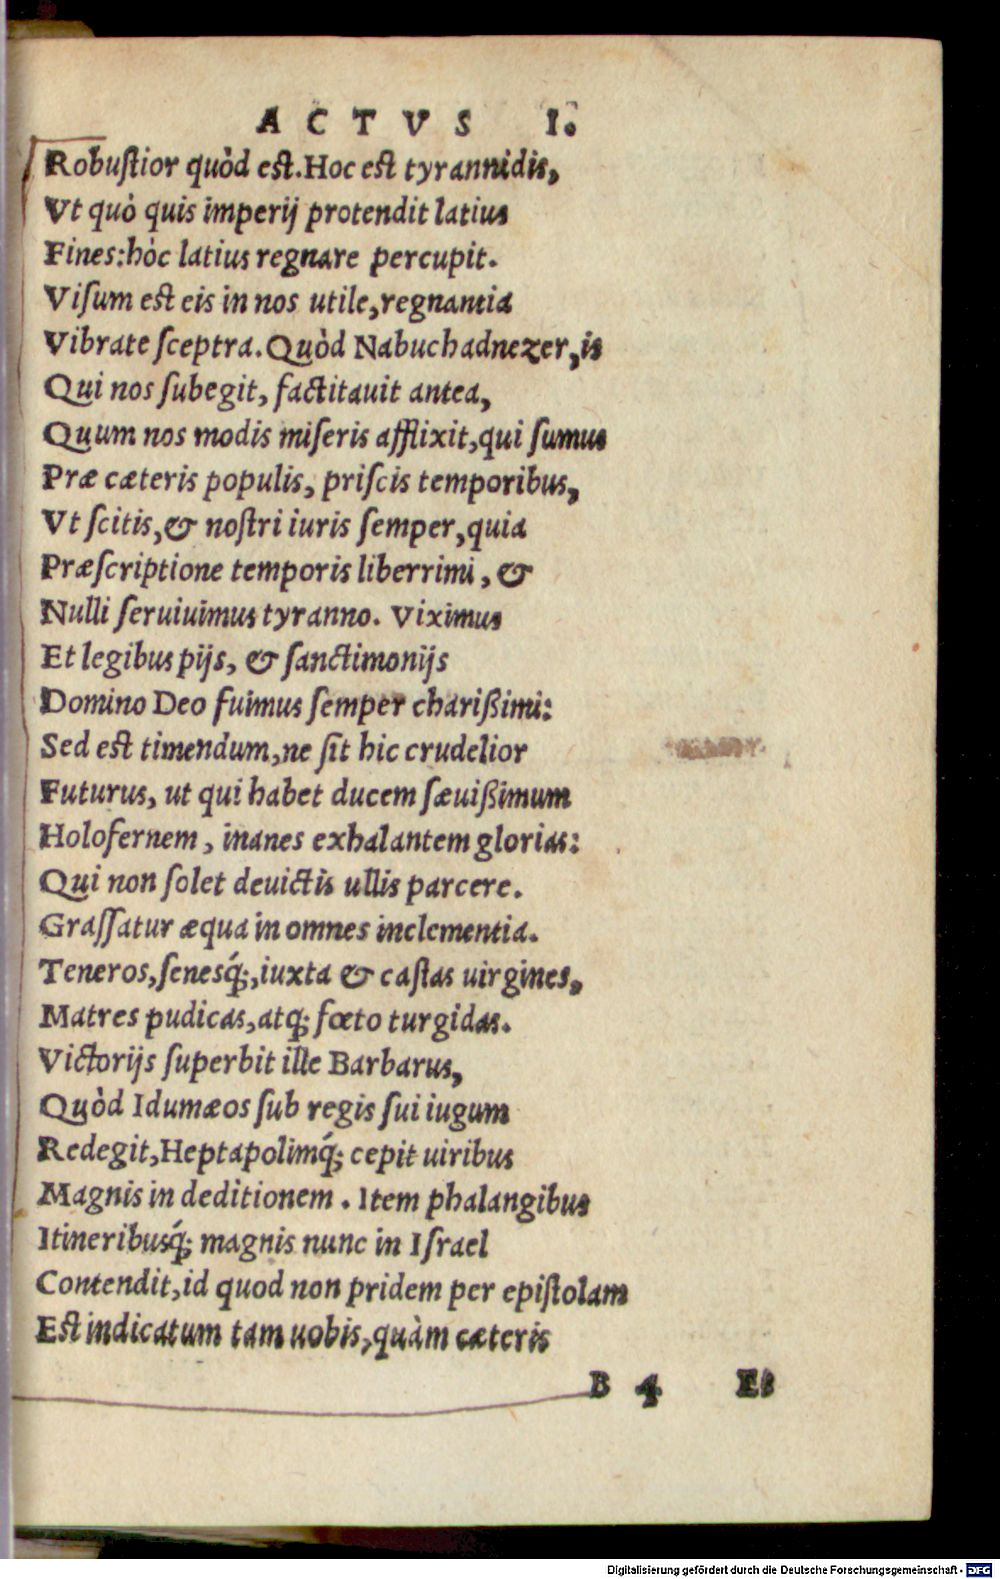 ACTVS I.
Robuſtior quòd eſt. Hoc eſt tyrannidis,
Vt quò quis imperij protendit latius
Fines: hòc latius regnare percupit.
Viſum eſt eis in nos utile, regnantia
Vibrate ſceptra. Quòd Nabuchadnezer, is
Qui nos ſubegit, factitauit antea,
Quum nos modis miſeris afflixit, qui ſumus
Præ cæteris populis, priſcis temporibus,
Vt ſcitis, & noſtri iuris ſemper, quia
Præſcriptione temporis liberrimi, &
Nulli ſeruiuimus tyranno. Viximus
Et legibus pijs, & ſanctimonijs
Domino Deo fuimus ſemper charißimi:
Sed eſt timendum, ne ſit hic crudelior
Futurus, ut qui habet ducem ſæuißimum
Holofernem, inanes exhalantem glorias:
Qui non ſolet deuictis ullis parcere.
Graſſatur æqua in omnes inclementia.
Teneros, ſenesq́;, iuxta & caſtas uirgines,
Matres pudicas, atq; fœto turgidas.
Victorijs ſuperbit ille Barbarus,
Quòd Idumæos ſub regis ſui iugum
Redegit, Heptapolimq́; cepit uiribus
Magnis in deditionem. Item phalangibus
Itineribusq́; magnis nunc in Iſrael
Contendit, id quod non pridem per epiſtolam
Eſt indicatum tam uobis, quàm cæteris
B 4
Digitalisierung gefördert durch die Deutsche Forschungsgemeinschaft - DFG